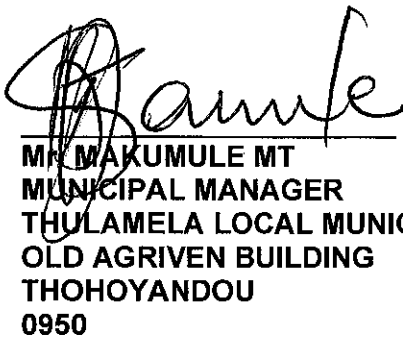 Mr MAKUMULE MT
MUNICIPAL MANAGER
THULAMELA LOCAL MUNIC
OLD AGRIVEN BUILDING
THOHOYANDOU
0950